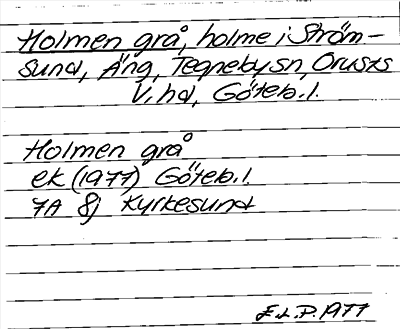 Holmen grå, holme i Ström-
sund, Äng, Tegneby sn, Orusts
V. hd, Göteb. l.
Holmen grå
ek (1977) Göteb. l.
7A 8j Kyrkesund
E.L.P. 1977